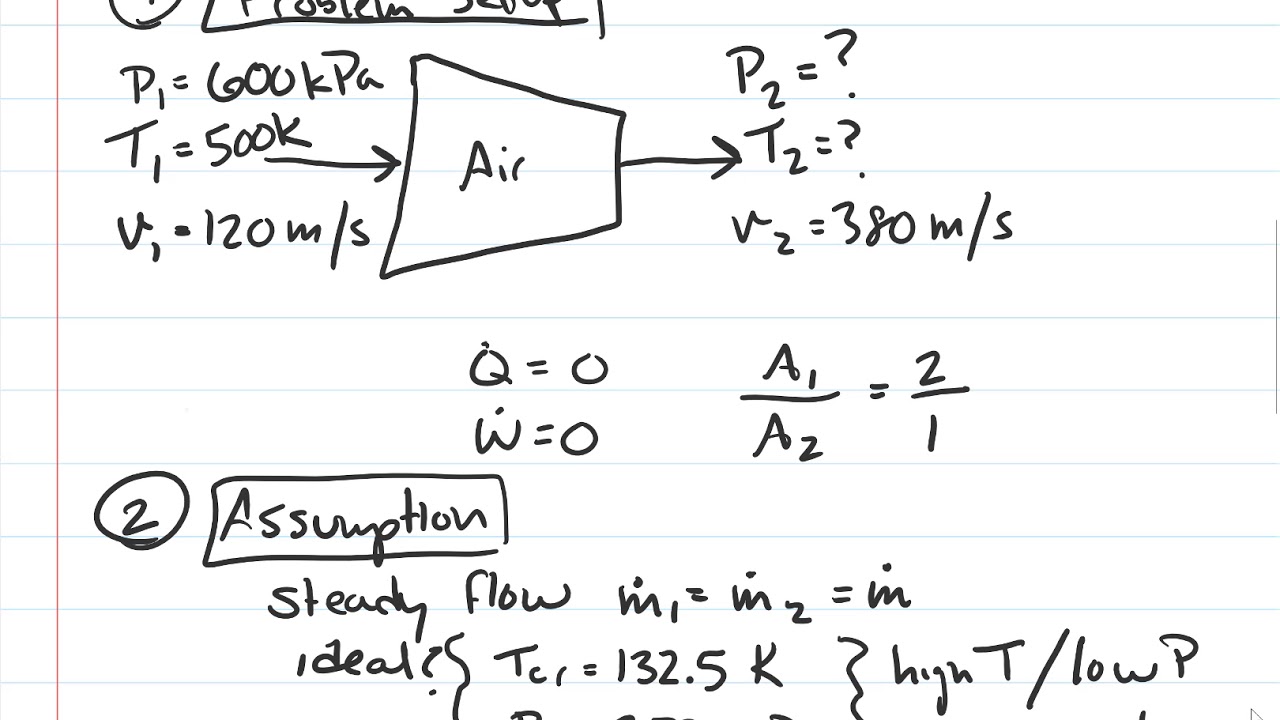 1 Problem Setup
P₁ = 600 kPa
T₁ = 500K
v₁ = 120 m/s
Air
P₂ = ?
T₂ = ?
v₂ = 380 m/s
Q̇ = 0
Ẇ = 0
A₁/A₂ = 2/1
2 Assumption
steady flow ṁ₁ = ṁ₂ = ṁ
ideal? { Tcr = 132.5 K } high T / low P